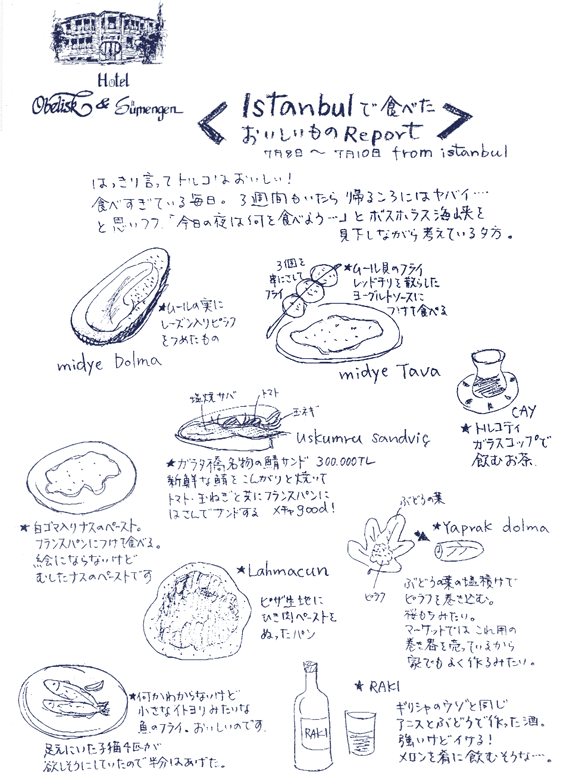 Hotel
Obelisk & Sümengen
Istanbulで食べた
おいしいものReport
7月8日〜7月10日 from istanbul
はっきり言ってトルコはおいしい!
食べすぎている毎日。3週間もいたら帰るころにはヤバイ‥‥
と思いつつ、「今日の夜は何を食べよう…」とボスホラス海峡を
見下しながら考えている夕方。
★ムールの実に
レーズン入りピラフ
をつめたもの
midye Dolma
3個を
串にさして
フライ
★ムール貝のフライ
レッドチリを散らした
ヨーグルトソースに
つけて食べる
midye Tava
ÇAY
★トルコティ
ガラスコップで
飲むお茶.
塩焼サバ
トマト
玉ネギ
Uskumru sandviç
★ガラタ橋名物の鯖サンド 300.000TL
新鮮な鯖をこんがりと焼いて
トマト・玉ねぎと共にフランスパンに
はさんでサンドする メチャgood!
★白ゴマ入りナスのペースト。
フランスパンにつけて食べる。
絵にならないけど
むしたナスのペーストです
ぶどうの葉
ピラフ
★Yaprak dolma
ぶどうの葉の塩漬けで
ピラフを巻き込む。
桜もちみたい。
マーケットではこれ用の
巻き器を売っているから
家でもよく作るみたい。
★Lahmacun
ピザ生地に
ひき肉ペーストを
ぬったパン
★何かわからないけど
小さなイトヨリみたいな
魚のフライ。おいしいのです.
足元にいた子猫4匹が
欲しそうにしていたので半分はあげた。
RAKI
★RAKI
ギリシャのウゾと同じ
アニスとぶどうで作った酒。
強いけどイケる!
メロンを肴に飲むそうな…。